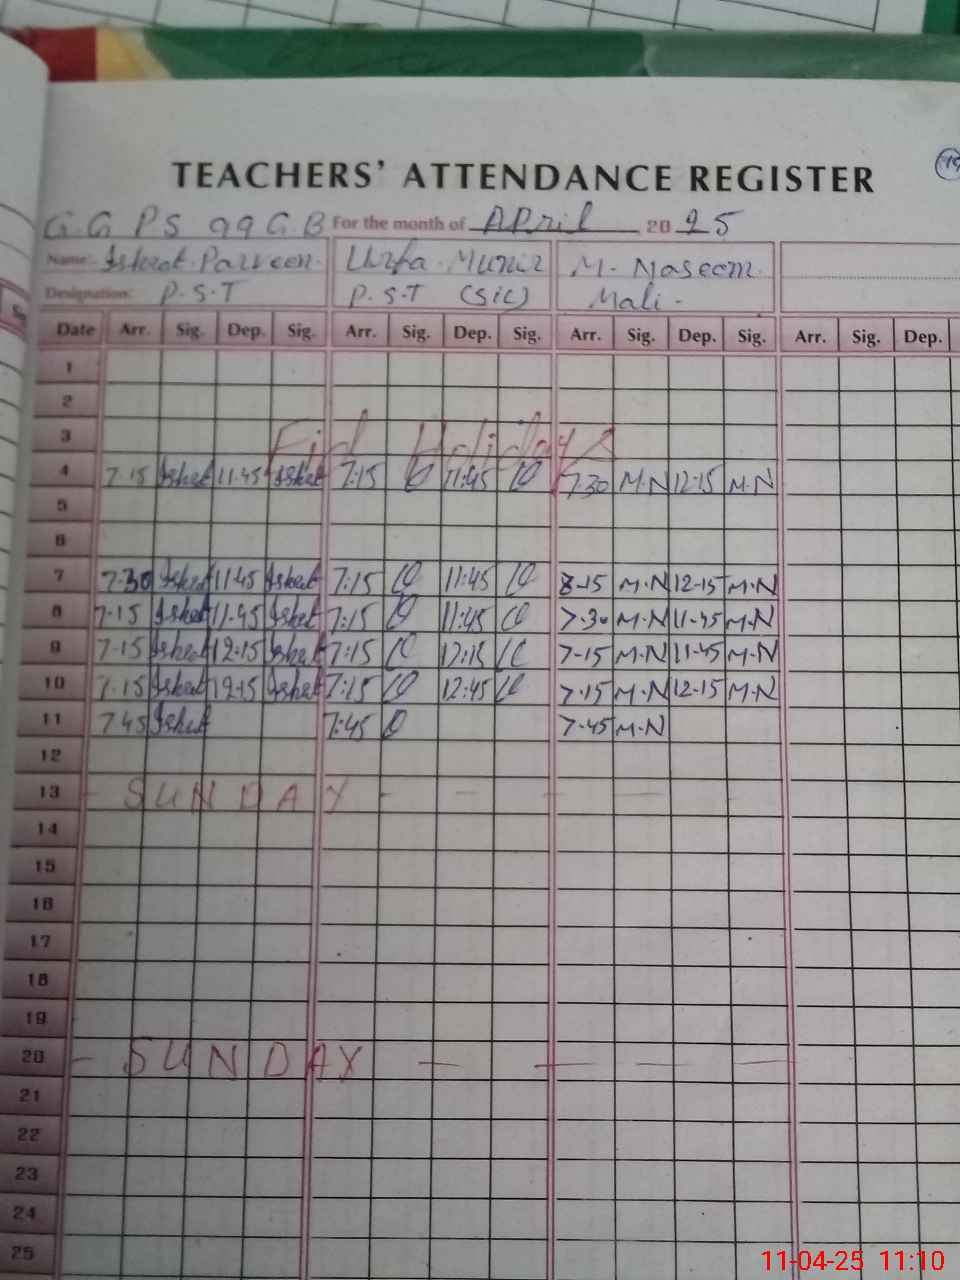 TEACHERS' ATTENDANCE REGISTER
G.G P S 99 G.B For the month of April 20 25
Name: Ishrat Parveen. Urfa Munir M. Naseem
Designation: P.S.T P.S.T (SIC) Mali -
Date Arr. Sig. Dep. Sig. Arr. Sig. Dep. Sig. Arr. Sig. Dep. Sig. Arr. Sig. Dep.
1
2
3 Eid Holidays
4 7.15 Ishrat 11.45 Ishrat 7:15 11:45 7.30 M.N 12.15 M.N
5
6
7 7.30 Ishrat 11.45 Ishrat 7:15 11:45 8-15 M.N 12-15 M.N
8 7-15 Ishrat 11.45 Ishrat 7:15 11:45 7.30 M.N 11.45 M.N
9 7-15 Ishrat 12.15 Ishrat 7:15 12:15 7-15 M.N 11.45 M.N
10 7.15 Ishrat 12.15 Ishrat 7:15 12:45 7.15 M.N 12.15 M.N
11 7.45 Ishrat 7:45 7.45 M.N
12
13 - SUNDAY - - - - -
14
15
16
17
18
19
20 - SUNDAY - - - -
21
22
23
24
25
11-04-25 11:10